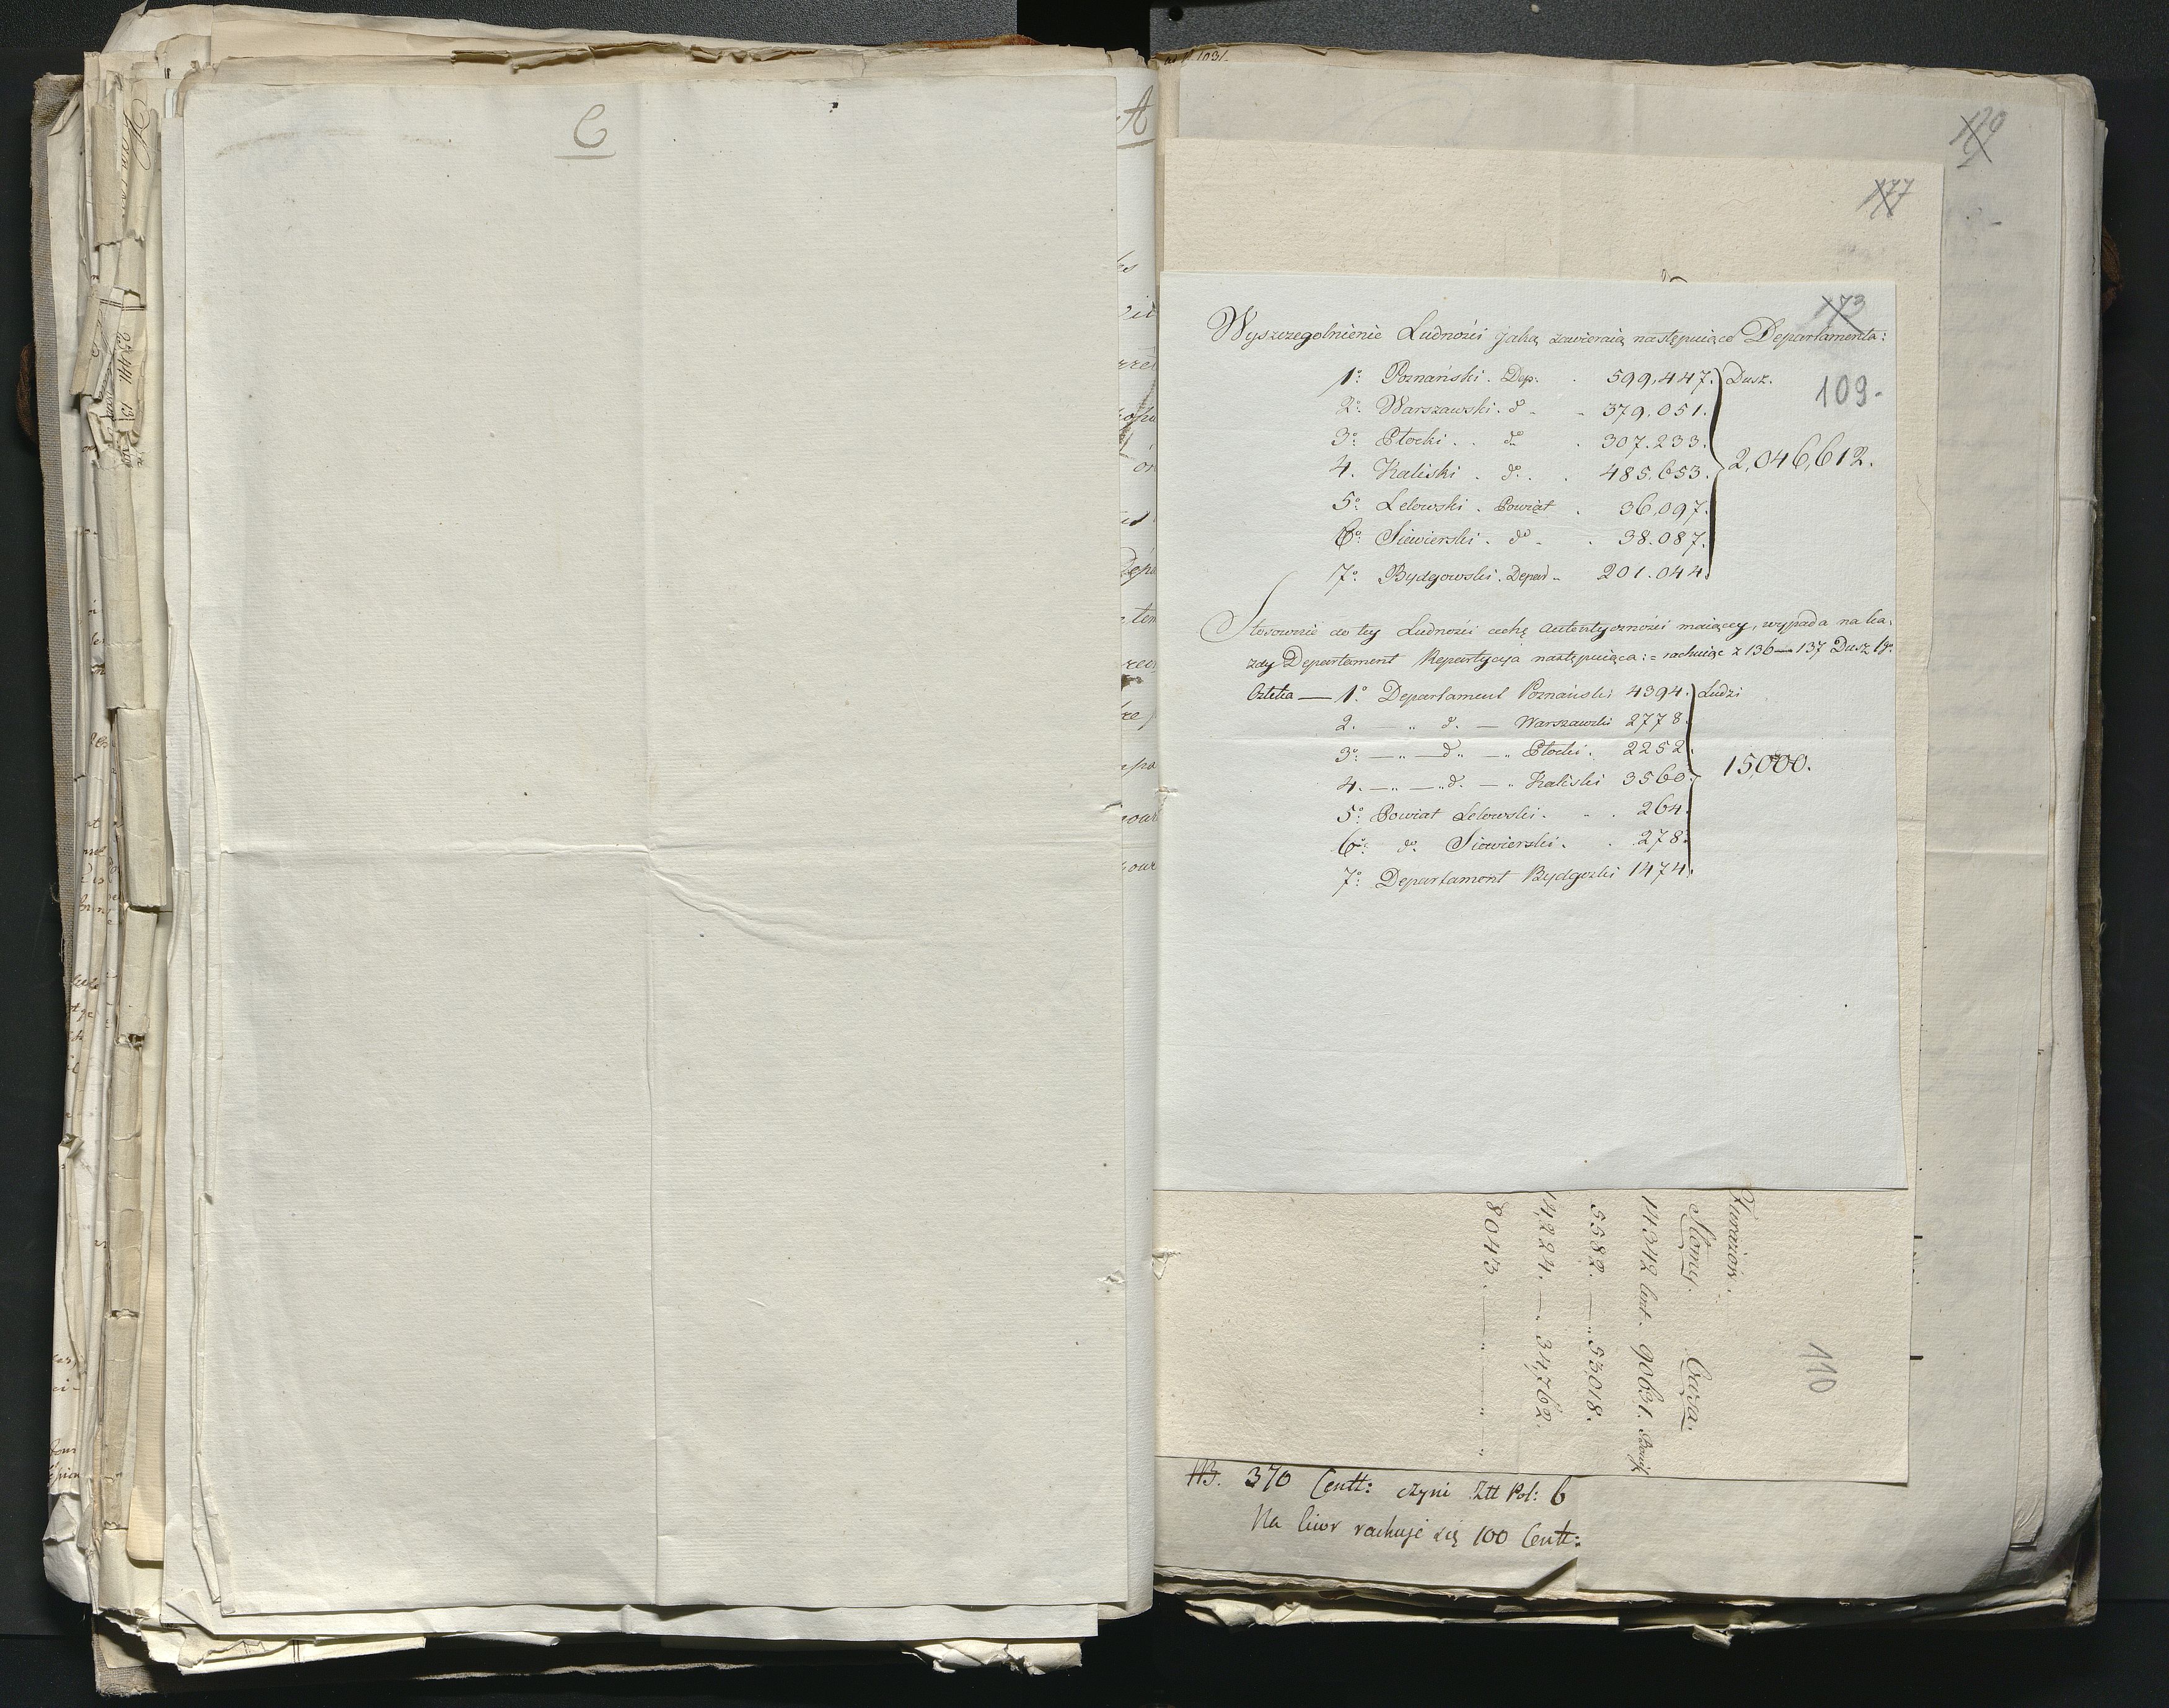 C
A
129
177
173
Wyszczegolnienie Ludności jaką zawieraią następuiące Departamenta:
1º Poznański. Dep. . 599,447. Dusz.
109.
2º Warszawski. dº - - 379.051.
3º Płocki . . dº . 307.233.
2,046,612.
4. Kaliski . dº. . 485.653.
5º Lelowski . Powiat . 36,097.
6º Siewierski . dº - . 38.087.
7º Bydgowski. Depart - 201.044.
Stosownie do tey Ludności cechę autentyczności maiącey, wypada na ka,
zdy Departament Repartycya następuiąca: = rachuiąc z 136 — 137 Dusz 1gº
Człeka — 1º Departament Poznański 4394. Ludzi
2. — " dº. — Warszawski 2778.
3º — " — dº " — " Płocki. 2252.
15000.
4. — " — " dº. — " Kaliski 3560.
5º Powiat Lelowski. - . 264.
6º dº. Siewierski. . 278.
7º Departament Bydgoski 1474.
Furażów.
Słomy. Owsa.
14342 Cent. 90631.
5582. — " 53,018.
14,224. — " 34,762.
8043. — " — " —
110
NB. 370 Centt: czyni Ztt Pol: 6
Na liwr rachuje się 100 Centt: